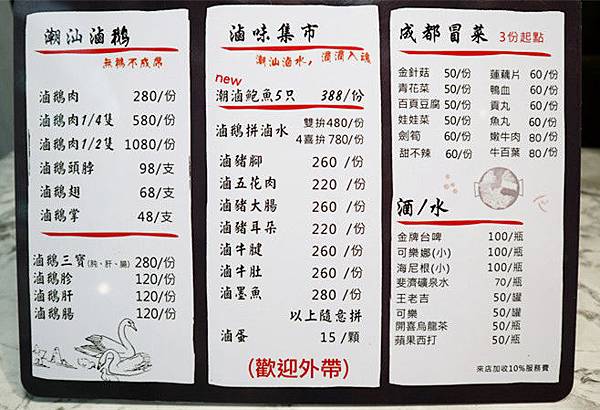 潮汕滷鵝
無鵝不成席
滷鵝肉 280/份
滷鵝肉1/4隻 580/份
滷鵝肉1/2隻 1080/份
滷鵝頭脖 98/支
滷鵝翅 68/支
滷鵝掌 48/支
滷鵝三寶(肫、肝、腸) 280/份
滷鵝胗 120/份
滷鵝肝 120/份
滷鵝腸 120/份
滷味集市
潮汕滷水，滴滴入魂
new
潮滷鮑魚5只 388/份
滷鵝拼滷水 雙拚480/份
4喜拚780/份
滷豬腳 260/份
滷五花肉 220/份
滷豬大腸 260/份
滷豬耳朵 220/份
滷牛腱 260/份
滷牛肚 260/份
滷墨魚 280/份
以上隨意拼
滷蛋 15/顆
(歡迎外帶)
成都冒菜 3份起點
金針菇 50/份 蓮藕片 60/份
青花菜 50/份 鴨血 60/份
百頁豆腐 50/份 貢丸 60/份
娃娃菜 50/份 魚丸 60/份
劍筍 60/份 嫩牛肉 80/份
甜不辣 60/份 牛百葉 80/份
酒/水
金牌台啤 100/瓶
可樂娜(小) 100/瓶
海尼根(小) 100/瓶
斐濟礦泉水 70/瓶
王老吉 50/罐
可樂 50/罐
開喜烏龍茶 50/瓶
蘋果西打 50/瓶
來店加收10%服務費